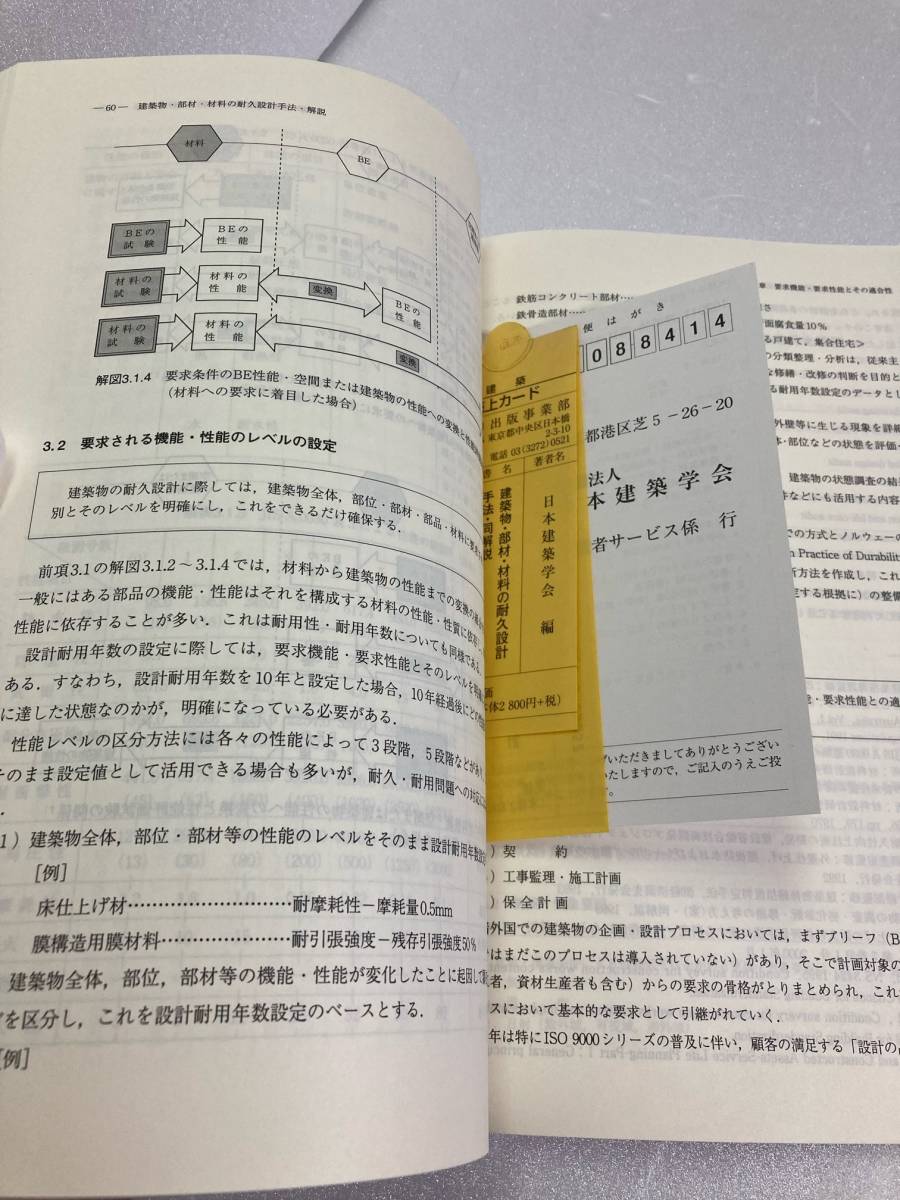 —60— 建築物・部材・材料の耐久設計手法・解説
材料
BE
BEの
試験
BEの
性能
材料の
試験
材料の
性能
変換
BEの
性能
材料の
試験
材料の
性能
変換
解図3.1.4 要求条件のBE性能・空間または建築物の性能への変換と
(材料への要求に着目した場合)
3.2 要求される機能・性能のレベルの設定
建築物の耐久設計に際しては，建築物全体，部位・部材・部品・材料に要求
別とそのレベルを明確にし，これをできるだけ確保する．
前項3.1の解図3.1.2～3.1.4では，材料から建築物の性能までの変換の
一般にはある部品の機能・性能はそれを構成する材料の性能・性質に依存
性能に依存することが多い．これは耐用性・耐用年数についても同様である．
設計耐用年数の設定に際しては，要求機能・要求性能とそのレベルを明
ある．すなわち，設計耐用年数を10年と設定した場合，10年経過後にどの
に達した状態なのかが，明確になっている必要がある．
性能レベルの区分方法には各々の性能によって3段階，5段階などがあり
そのまま設定値として活用できる場合も多いが，耐久・耐用問題への対応に
1) 建築物全体，部位・部材等の性能のレベルをそのまま設計耐用年数
[例]
床仕上げ材……………………耐摩耗性−摩耗量0.5mm
膜構造用膜材料…………………耐引張強度−残存引張強度50%
建築物全体，部位，部材等の機能・性能が変化したことに起因して
を区分し，これを設計耐用年数設定のベースとする．
[例]
章 要求機能・要求性能とその適合性
鉄筋コンクリート部材……
鉄骨造部材……
さ
面腐食量10%
る戸建て，集合住宅＞
の分類整理・分析は，従来主
な修繕・改修の判断を目的と
る耐用年数設定のデータとし
外壁等に生じる現象を詳細
体・部位などの状態を評価
建築物の状態調査の結果
件などにも活用する内容
での方式とノルウェーの
n Practice of Durability
斤方法を作成し，これ
定する根拠に）の整備
能・要求性能との適
便はがき
1088414
都港区芝5-26-20
法人
本建築学会
者サービス係 行
いただきましてありがとうござい
いたしますので，ご記入のうえご投
す。
建築
上カード
出版事業部
東京都中央区日本橋
2-3-10
電話 03(3272)0521
書名
著者名
建築物・部材・材料の耐久設計
手法・同解説
日本建築学会 編
価
本体2 800円+税)
) 契 約
) 工事監理・施工計画
) 保全計画
外国での建築物の企画・設計プロセスにおいては，まずブリーフ（B
はまだこのプロセスは導入されていない）があり，そこで計画対象の
者，資材生産者も含む）からの要求の骨格がとりまとめられ，これ
スにおいて基本的な要求として引継がれていく．
年は特にISO 9000シリーズの普及に伴い，顧客の満足する「設計の